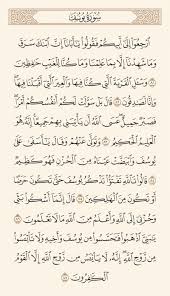 سُورَةُ يُوسُفَ
ٱرْجِعُوٓاْ إِلَىٰٓ أَبِيكُمْ فَقُولُواْ يَـٰٓأَبَانَآ إِنَّ ٱبْنَكَ سَرَقَ
وَمَا شَهِدْنَآ إِلَّا بِمَا عَلِمْنَا وَمَا كُنَّا لِلْغَيْبِ حَـٰفِظِينَ ٨١
وَسْـَٔلِ ٱلْقَرْيَةَ ٱلَّتِي كُنَّا فِيهَا وَٱلْعِيرَ ٱلَّتِيٓ أَقْبَلْنَا فِيهَا
وَإِنَّا لَصَـٰدِقُونَ ٨٢ قَالَ بَلْ سَوَّلَتْ لَكُمْ أَنفُسُكُمْ أَمْرًا
فَصَبْرٌ جَمِيلٌ عَسَى ٱللَّهُ أَن يَأْتِيَنِي بِهِمْ جَمِيعًا إِنَّهُۥ هُوَ
ٱلْعَلِيمُ ٱلْحَكِيمُ ٨٣ وَتَوَلَّىٰ عَنْهُمْ وَقَالَ يَـٰٓأَسَفَىٰ عَلَىٰ
يُوسُفَ وَٱبْيَضَّتْ عَيْنَاهُ مِنَ ٱلْحُزْنِ فَهُوَ كَظِيمٌ ٨٤
قَالُواْ تَٱللَّهِ تَفْتَؤُاْ تَذْكُرُ يُوسُفَ حَتَّىٰ تَكُونَ حَرَضًا
أَوْ تَكُونَ مِنَ ٱلْهَـٰلِكِينَ ٨٥ قَالَ إِنَّمَآ أَشْكُواْ بَثِّي
وَحُزْنِيٓ إِلَى ٱللَّهِ وَأَعْلَمُ مِنَ ٱللَّهِ مَا لَا تَعْلَمُونَ ٨٦
يَـٰبَنِيَّ ٱذْهَبُواْ فَتَحَسَّسُواْ مِن يُوسُفَ وَأَخِيهِ وَلَا تَاْيْـَٔسُواْ
مِن رَّوْحِ ٱللَّهِ إِنَّهُۥ لَا يَاْيْـَٔسُ مِن رَّوْحِ ٱللَّهِ إِلَّا ٱلْقَوْمُ
ٱلْكَـٰفِرُونَ ٨٧